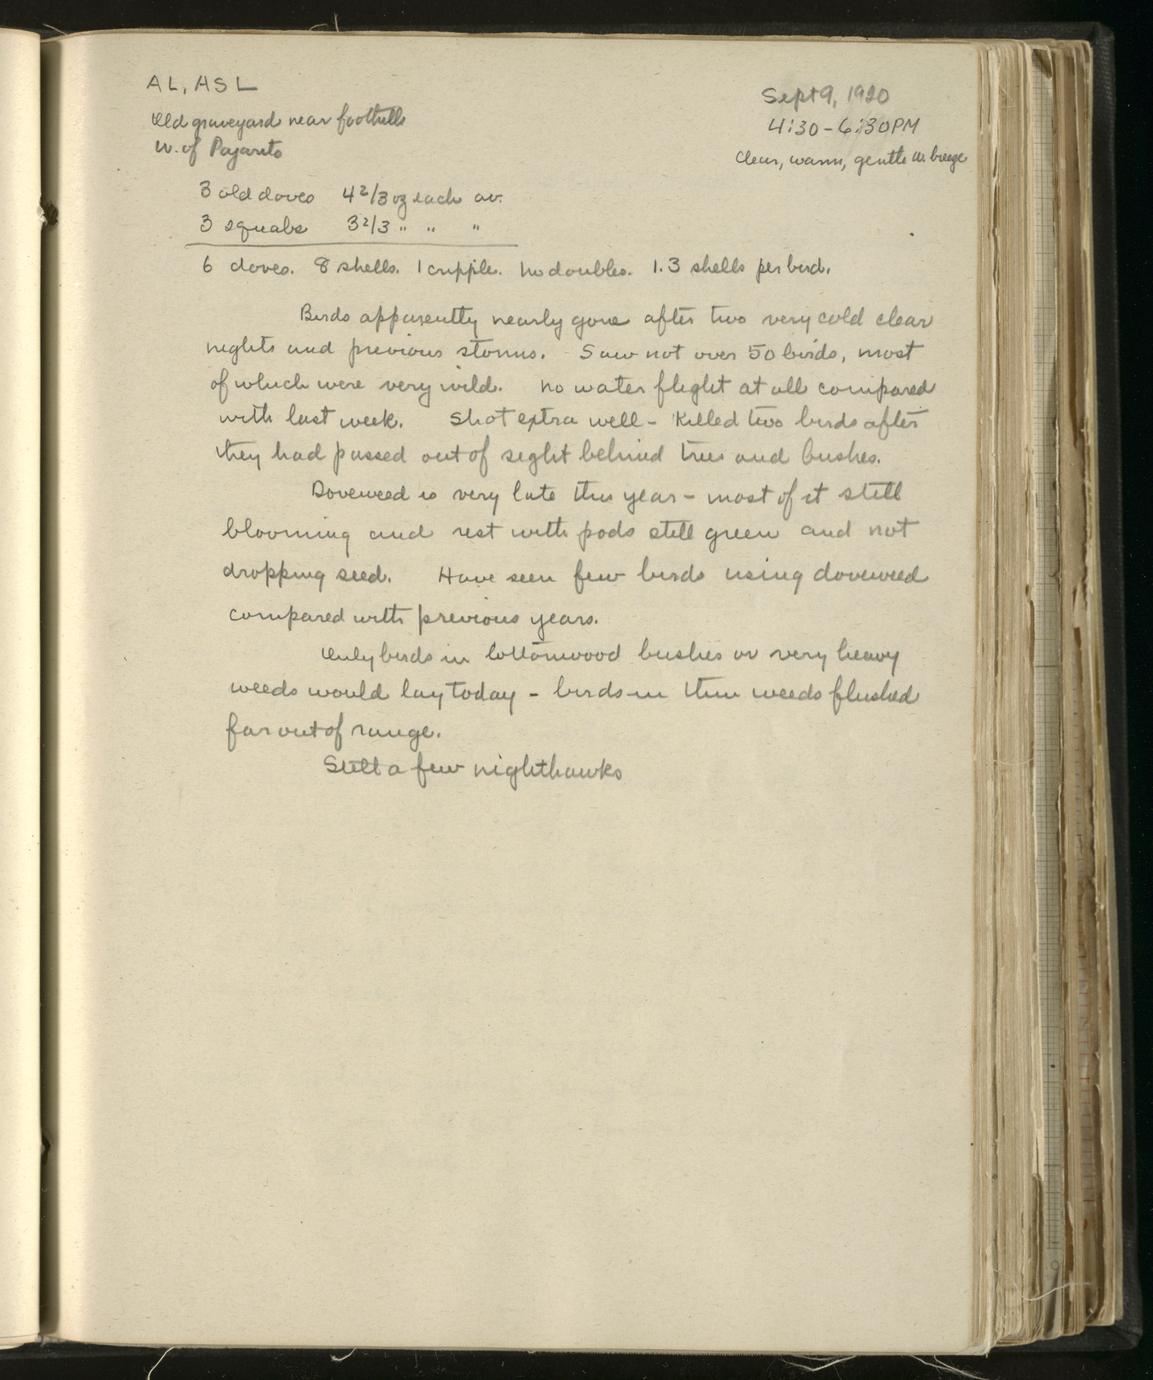 AL, ASL
Sept 9, 1920
Old graveyard near foothills
4:30-6:30PM
W. of Pajarito
Clear, warm, gentle W. breeze
3 old doves 4 2/3 oz each av.
3 squabs 3 2/3 " " "
6 doves. 8 shells. 1 cripple. No doubles. 1.3 shells per bird.
Birds apparently nearly gone after two very cold clear
nights and previous storms. Saw not over 50 birds, most
of which were very wild. No water flight at all compared
with last week. Shot extra well - killed two birds after
they had passed out of sight behind trees and bushes.
Doveweed is very late this year - most of it still
blooming and rest with pods still green and not
dropping seed. Have seen few birds using doveweed
compared with previous years.
Only birds in cottonwood bushes or very heavy
weeds would lay today - birds in thin weeds flushed
far out of range.
Still a few nighthawks